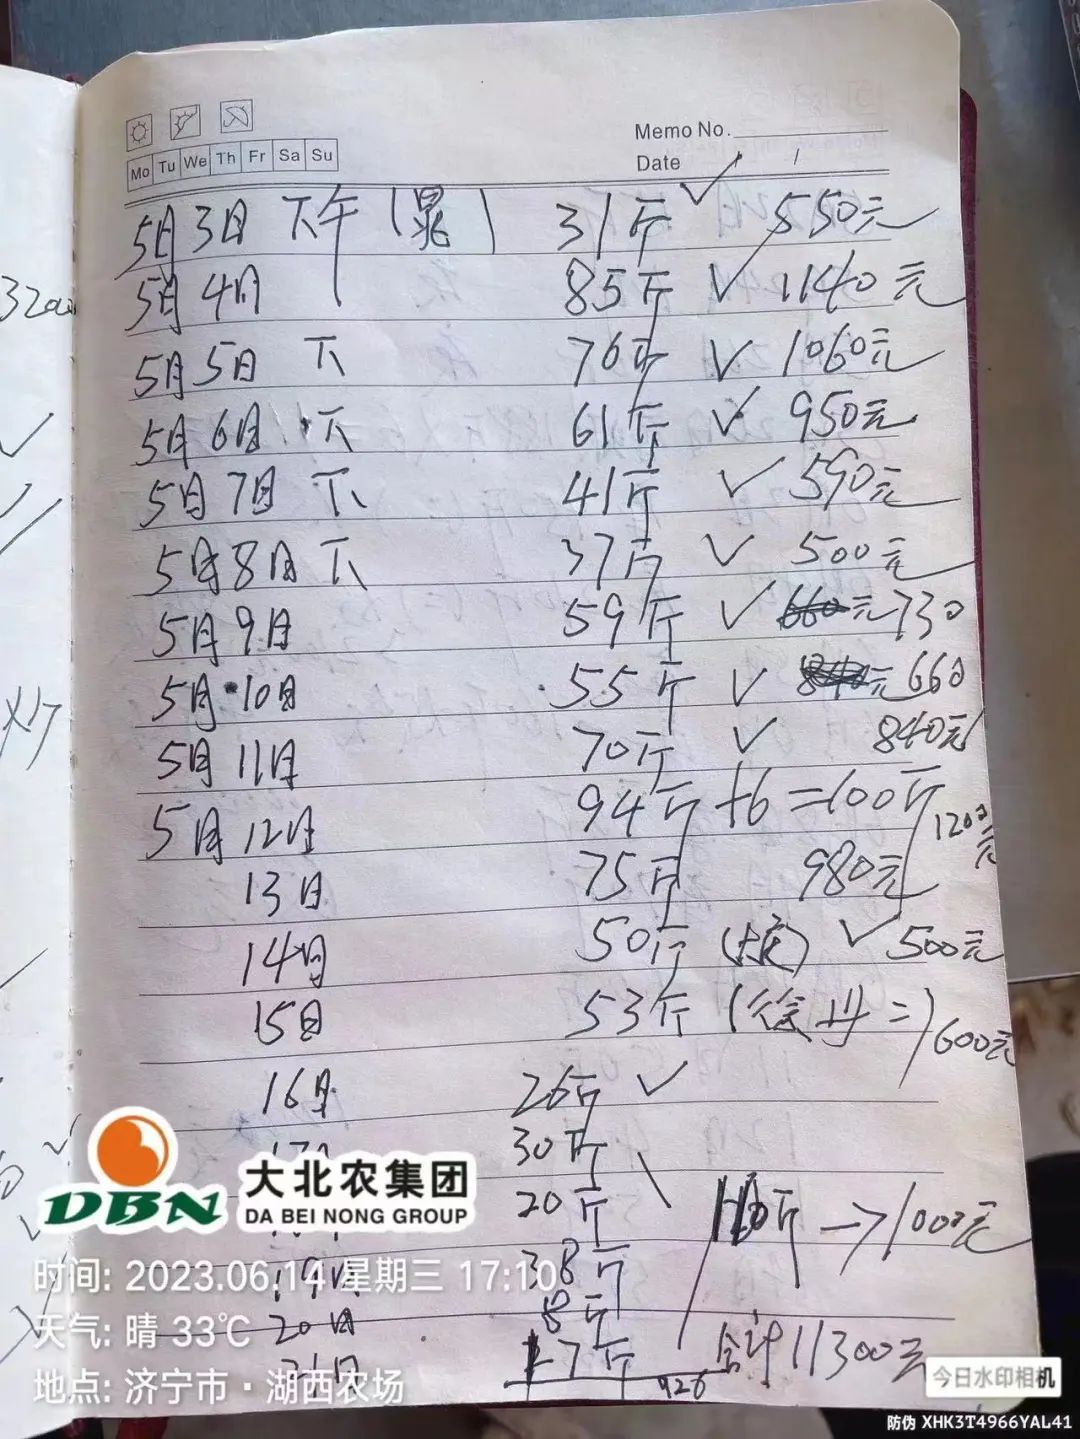 Memo No.
Mo Tu We Th Fr Sa Su
Date
5月3日 下午 (晁) 31斤 ✓ 550元
5月4日 85斤 ✓ 1140元
5月5日 下 76斤 ✓ 1060元
5月6日 下 61斤 ✓ 950元
5月7日 下 41斤 ✓ 590元
5月8日 下 37斤 ✓ 500元
5月9日 59斤 ✓ 660元 730
5月10日 55斤 ✓ 840元 660
5月11日 70斤 ✓ 840元
5月12日 94斤 +6=100斤
1200元
13日 75斤 980元
14日 50斤 ✓ 500元
15日 53斤 600元
16日 26斤 ✓
30斤
20斤 110斤→1000元
19日 38斤
20日 8斤
21日 17斤 合计11300元
926
3200
DBN 大北农集团
DA BEI NONG GROUP
时间: 2023.06.14 星期三 17:10
天气: 晴 33℃
地点: 济宁市·湖西农场
今日水印相机
防伪 XHK3T4966YAL41